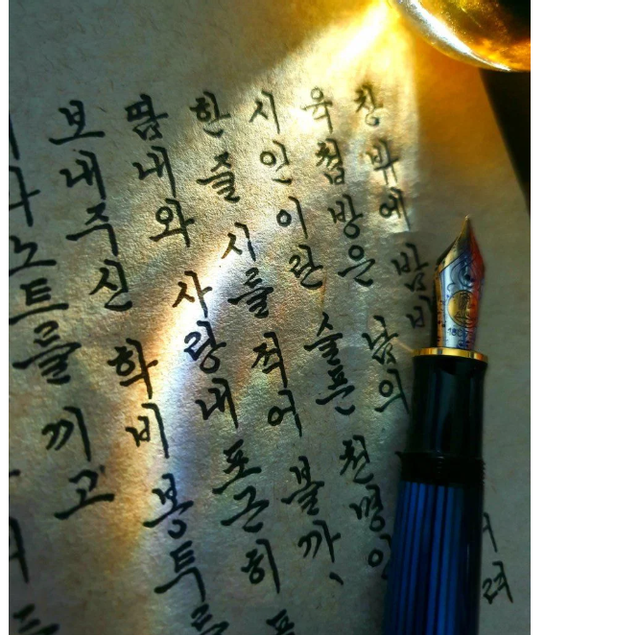 창 밖에 밤비 려
육첩방은 남의
시인이란 슬픈 천명인
한 줄 시를 적어 볼까,
땀내와 사랑내 포근히
보내주신 학비 봉투를
노트를 끼고